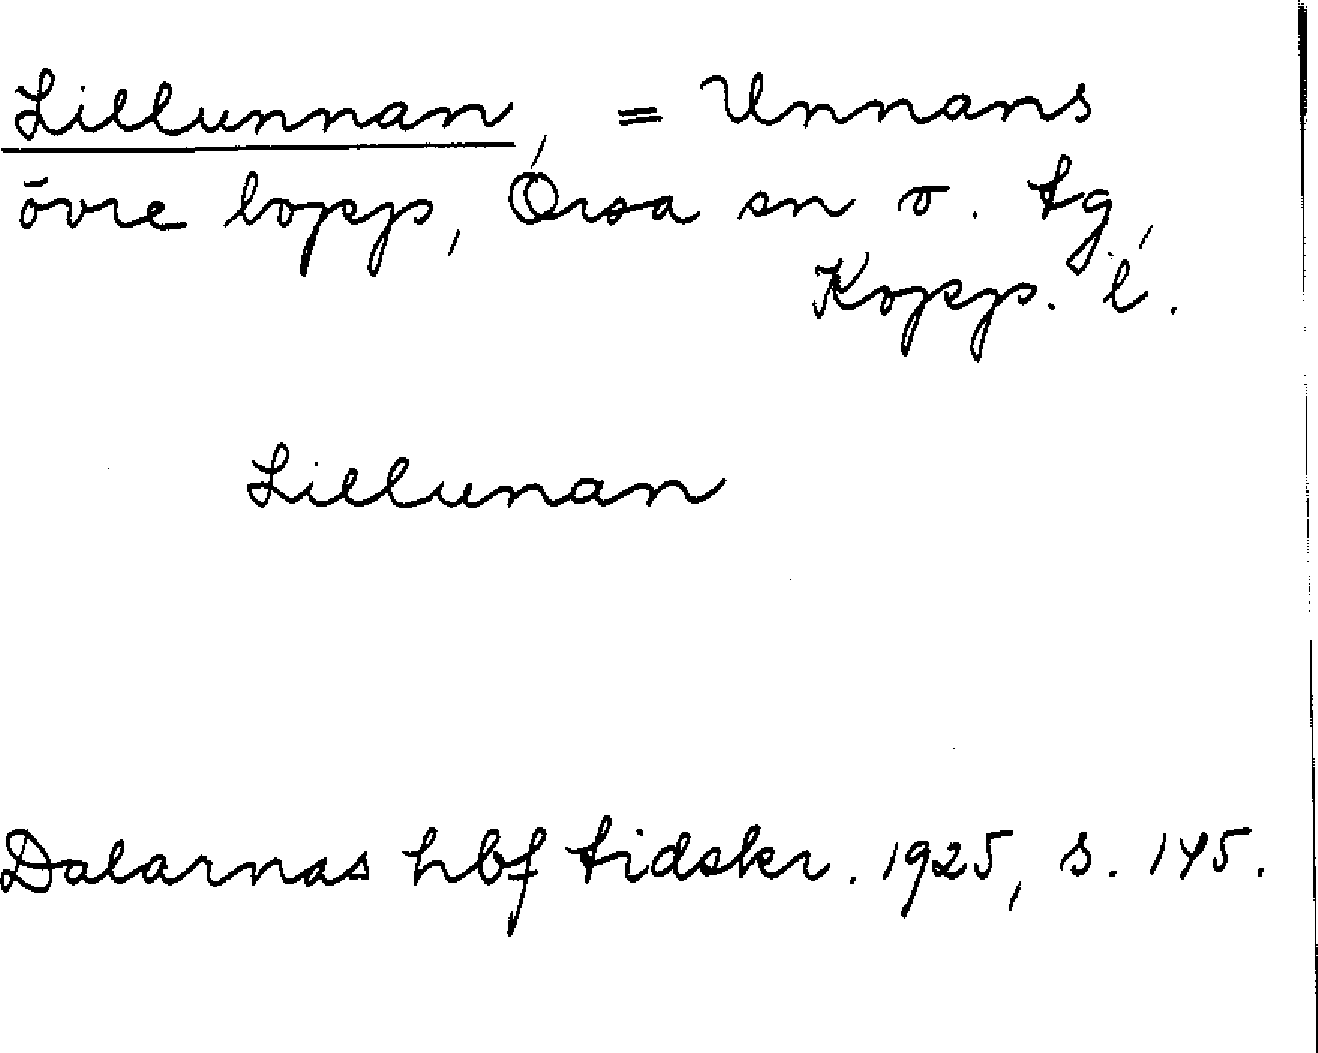 Lillunnan, = Unnans
övre lopp, Orsa sn o. tg,
Kopp. l.
Lillunan
Dalarnas hbf tidskr. 1925, s. 145.